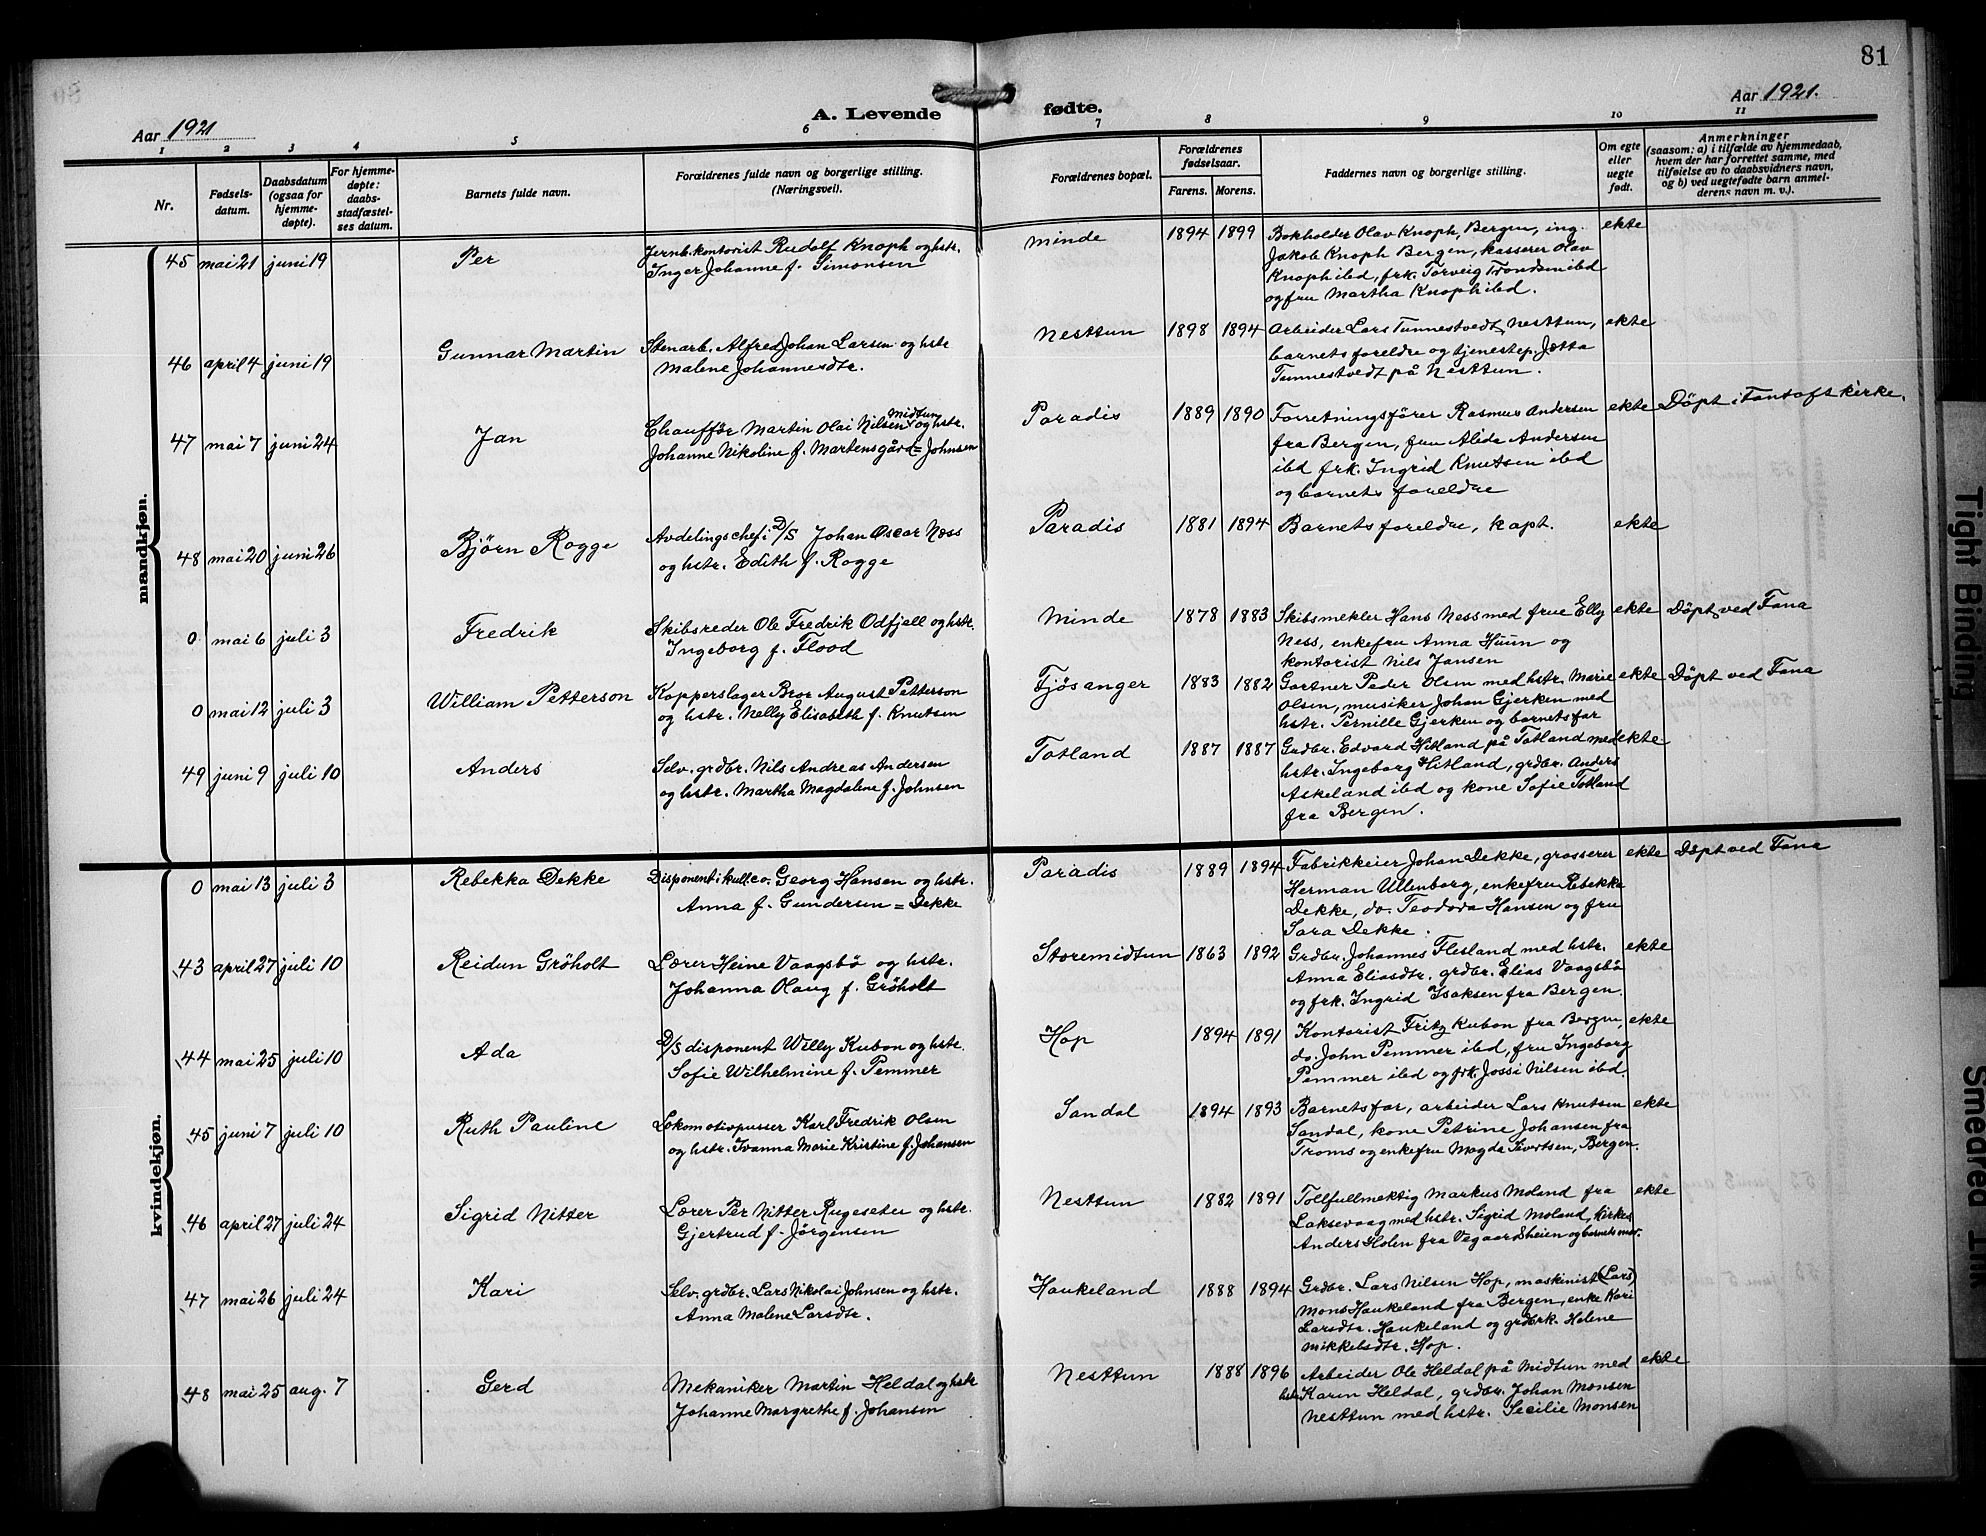 81
Aar 1921
A. Levende fødte.
Aar 1921.
1 2 3 4 5 6 7 8 9 10 11
Nr.
Fødsels-
datum.
Daabsdatum
(ogsaa for
hjemme-
døpte).
For hjemme-
døpte:
daabs-
stadfæstel-
ses datum.
Barnets fulde navn.
Forældrenes fulde navn og borgerlige stilling.
(Næringsvei).
Forældrenes bopæl.
Forældrenes
fødselsaar.
Farens. Morens.
Faddernes navn og borgerlige stilling.
Om egte
eller
uegte
født.
Anmerkninger
(saasom: a) i tilfælde av hjemmedaab,
hvem der har forrettet samme, med
tilføielse av to daabsvidners navn,
og b) ved uegtefødte barn anmel-
derens navn m. v.).
mandkjøn.
45 mai 21 juni 19 Per
Jernb.kontorist Rudolf Knoph og hstr.
Inger Johanne f. Simonsen
Minde 1894 1899
Bokholder Olav Knoph, Bergen, ing.
Jakob Knoph Bergen, kasserer Olav
Knoph ibd, frk. Torveig Trondsen ibd
og fru Martha Knoph ibd.
ekte
46 april 4 juni 19 Gunnar Martin
Stenarb. Alfred Johan Larsen og hstr
Malene Johannesdtr.
Nesttun 1898 1894
Arbeider Lars Tunnestvedt, Nesttun,
barnets foreldre og tjenestep. Jætta
Tunnestvedt på Nesttun.
ekte
47 mai 7 juni 24 Jan
Chauffør Martin Olai Nilsen Midtun og hstr.
Johanne Nikoline f. Martensgård = Johnsen
Paradis 1889 1890
Forretningsfører Rasmus Andersen
fra Bergen, fru Alida Andersen
ibd frk. Ingrid Knutsen ibd
og barnets foreldre
ekte Døpt i Fantoft kirke.
48 mai 20 juni 26 Bjørn Rogge
Avdelingschef i D/S Johan Oscar Næss
og hstr. Edith f. Rogge
Paradis 1881 1894
Barnets foreldre, kapt.
ekte
0 mai 6 juli 3 Fredrik
Skibsreder Ole Fredrik Odfjell og hstr.
Ingeborg f. Flood
Minde 1878 1883
Skibsmekler Hans Ness med frue Elly
Ness, enkefru Anna Huun og
kontorist Nils Jansen
ekte Døpt ved Fana
0 mai 12 juli 3 William Petterson
Kopperslager Bror August Petterson
og hstr. Nelly Elisabeth f. Knutsen
Fjøsanger 1883 1882
Gartner Peder Olsen med hstr. Marie
Olsen, musiker Johan Gjerken med
hstr. Pernille Gjerken og barnets far
ekte Døpt ved Fana
49 juni 9 juli 10 Anders
Selv. grdbr. Nils Andreas Andersen
og hstr. Martha Magdalene f. Johnsen
Totland 1887 1887
Grdbr. Edvard Hitland på Totland med
hstr. Ingeborg Hitland, grdbr. Anders
Askeland ibd og kone Sofie Totland
fra Bergen.
ekte
kvindekjøn.
0 mai 13 juli 3 Rebekka Dekke
Disponent i kullco. Georg Hansen og hstr.
Anna f. Gundersen = Dekke
Paradis 1889 1894
Fabrikkeier Johan Dekke, grosserer
Herman Ullenborg, enkefru Rebekka
Dekke, do. Teodora Hansen og fru
Sara Dekke.
ekte Døpt ved Fana
43 april 27 juli 10 Reidun Grøholt
Lærer Heine Vaagsbø og hstr.
Johanna Olaug f. Grøholt
Storemidtun 1863 1892
Grdbr. Johannes Flesland med hstr.
Anna Eliasdtr. grdbr. Elias Vaagsbø
og frk. Ingrid Isaksen fra Bergen.
ekte
44 mai 25 juli 10 Ada
D/S disponent Willy Kubon og hstr.
Sofie Wilhelmine f. Pemmer
Hop 1894 1891
Kontorist Fritz Kubon fra Bergen,
do. John Pemmer ibd, fru Ingeborg
Pemmer ibd og frk. Jossi Nilsen ibd.
ekte
45 juni 7 juli 10 Ruth Pauline
Lokomotivpusser Karl Fredrik Olsen
og hstr. Ivanna Marie Kristine f. Johansen
Sandal 1894 1893
Barnets far, arbeider Lars Knutsen
Sandal, kone Petrine Johansen fra
Troms og enkefru Magda Sivertsen, Bergen.
ekte
46 april 27 juli 24 Sigrid Nitter
Lærer Per Nitter Rugeseter og hstr.
Gjertrud f. Jørgensen
Nesttun 1882 1891
Tollfullmektig Markus Moland fra
Laksevaag med hstr. Sigrid Moland, kirkes.
Anders Holen fra Vegaardsheien og barnets mor.
ekte
47 mai 26 juli 24 Kari
Selv. grdbr. Lars Nikolai Johnsen og hstr.
Anna Malene Larsdtr.
Haukeland 1888 1894
Grdbr. Lars Nilsen Hop, maskinist (Lars)
Mons Haukeland fra Bergen, enke Kari
Larsdtr. Haukeland og grdbrk. Helene
Mikkelsdtr. Hop.
48 mai 25 aug. 7 Gerd
Mekaniker Martin Heldal og hstr
Johanne Margrethe f. Johansen
Nesttun 1888 1896
Arbeider Ole Heldal på Midtun med
hstr. Karen Heldal, grdbr. Johan Monsen
Nesttun med hstr. Secilie Monsen
ekte
Tight Binding
Smeared Ink